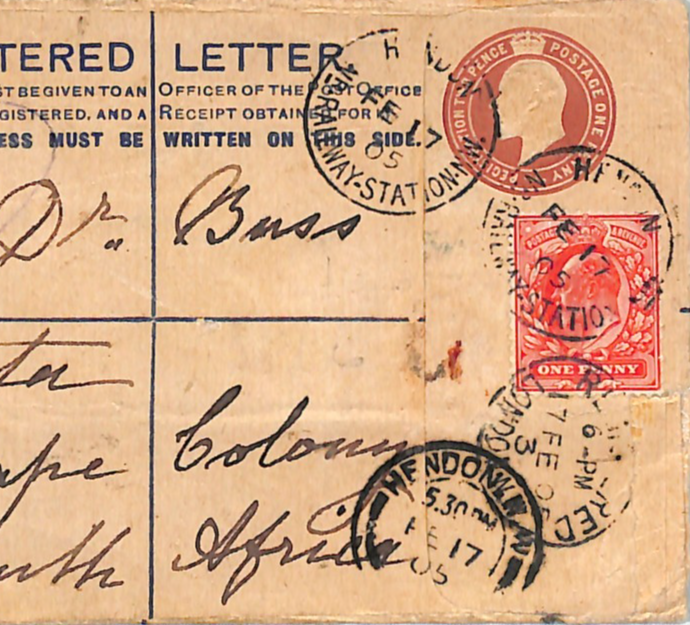 TERED LETTER
ST BE GIVEN TO AN OFFICER OF THE POST OFFICE
GISTERED, AND A RECEIPT OBTAINED FOR IT
ESS MUST BE WRITTEN ON THIS SIDE.
HENDON
RAILWAY-STATION-N.W
FE 17
05
POSTAGE ONE PENNY
PENCE
Dr. Buss
HENDON
RAILWAY-STATION
FE 17
05
POSTAGE & REVENUE
ONE PENNY
ta
ape Colony
uth Africa
HENDON.N.W
5.30 PM
FE 17
05
REGISTERED
6-PM
17 FE 05
LONDON
3